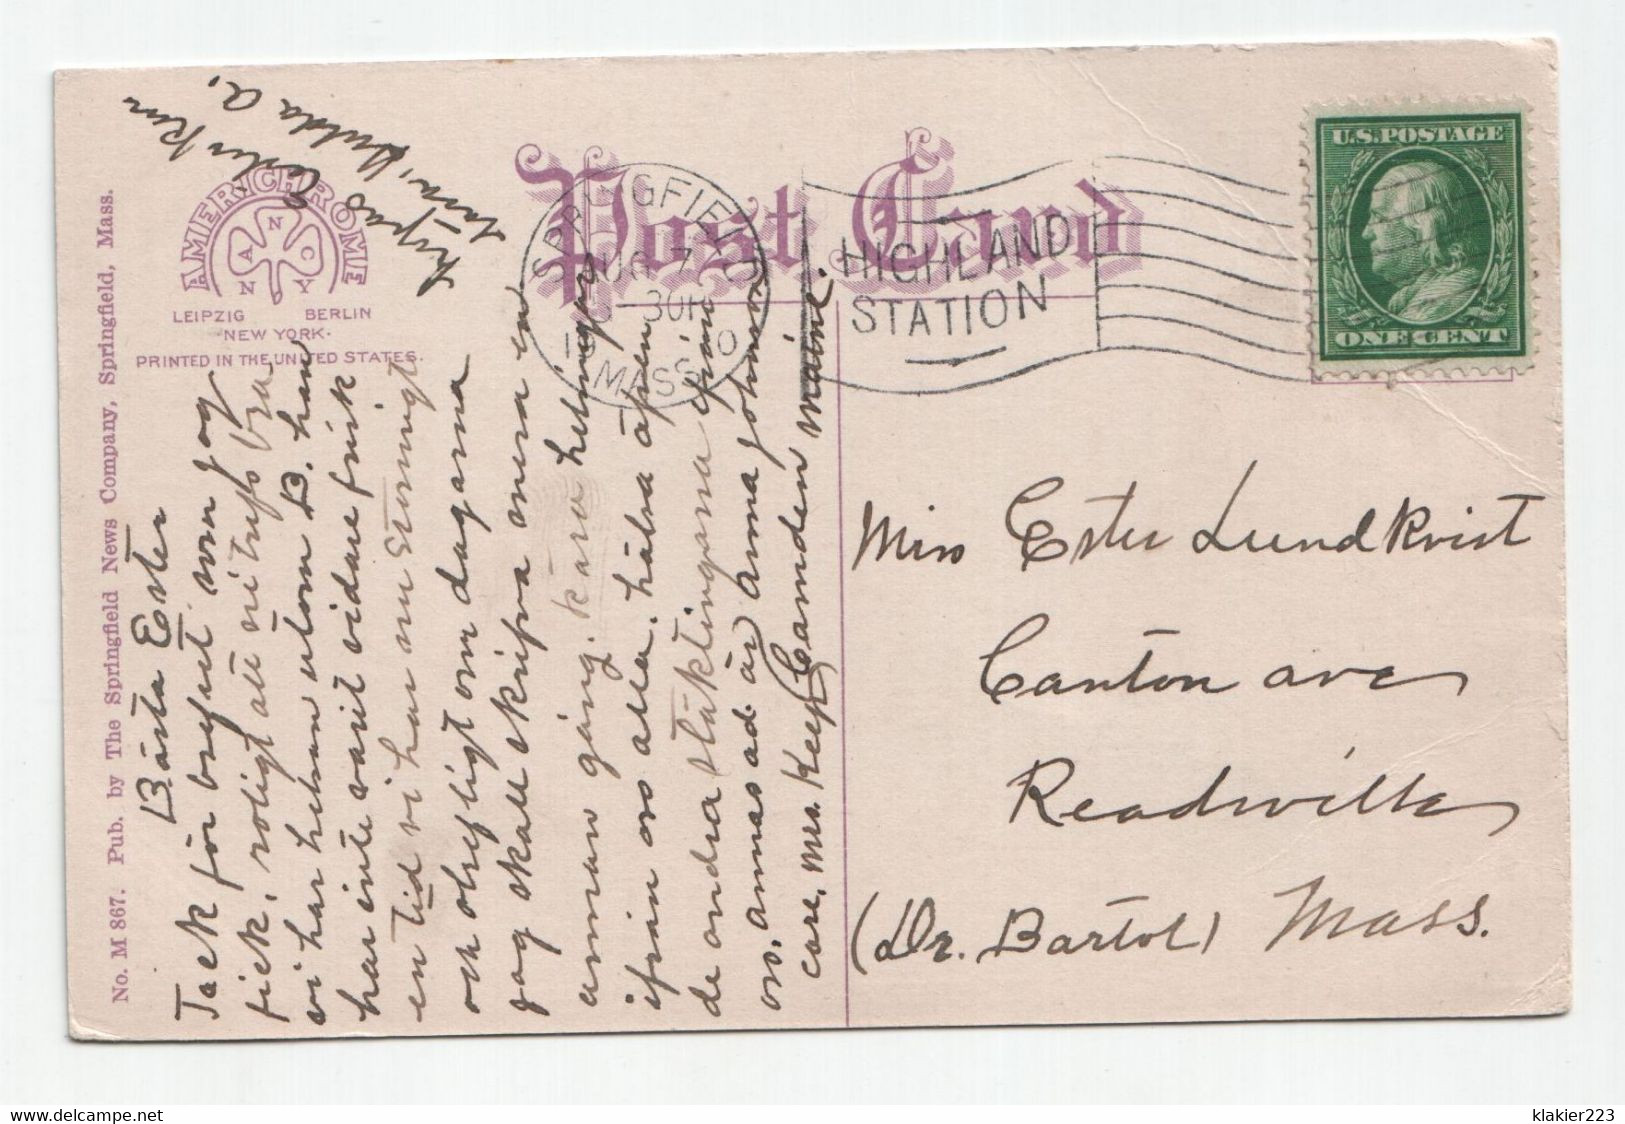 No. M 867. Pub. by The Springfield News Company, Springfield, Mass.
AMERICHROME
A N C
N Y
LEIPZIG BERLIN
NEW YORK.
PRINTED IN THE UNITED STATES.
Post Card
SPRINGFIELD
AUG 7
-30P
MASS
HIGHLAND
STATION
U.S. POSTAGE
ONE CENT
Bästa Ester
Tack för brefvet som jag
fick, roligt att ni träfs bra
vi har helsan utom B. han
har inte varit vidare frisk
en tid vi har nu
och ohyfligt om dagarna
jag skall skrifva mera en
annan gång. kära helsningar
ifrån oss alla. hälsa äfven
de andra släktingarna ifrån
oss, annas ad är Anna Johnson
care, Mrs. Keep Camden Maine.
Hulda A.
Miss Ester Lundkvist
Canton ave
Readville
(Dr. Bartol) Mass.
klakier223
www.delcampe.net